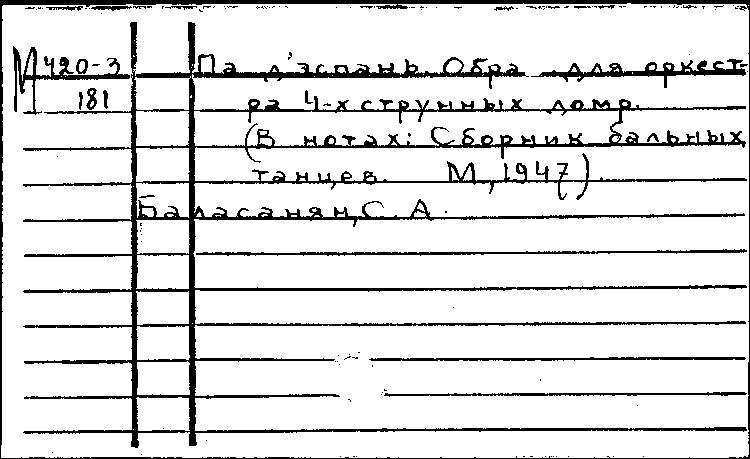 М 420-3 Па д'эспань. Обра для оркест-
181 ра 4-х струнных домр.
(В нотах: Сборник бальных
танцев. М., 1947).
Баласанян, С. А.